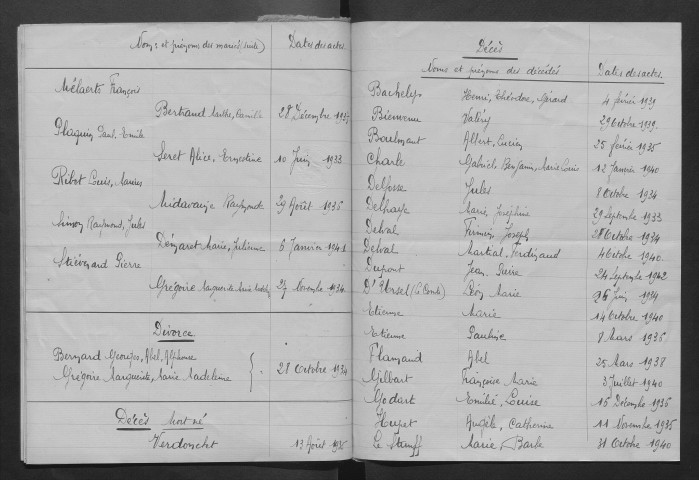 Noms et prénoms des mariés (suite) Dates des actes.
Mélaerts François
Bertrand Marthe, Camille 28 Décembre
Plaquin Paul, Emile
Seret Alice, Ernestine 10 Juin 1933
Ribot Louis, Marius
Midavaine Raymonde 29 Août 1936
Simon Raymond, Jules
Démaret Marie, Julienne 6 Janvier 1941
Stiévenard Pierre
Grégoire Marguerite Marie 27 Novembre 1934
Divorce
Bernard Georges, Abel, Alphonse
Grégoire Marguerite, Marie Madeleine 28 Octobre 1934
Décès mort né
Verdonckt 13 Août 1935
Décès
Noms et prénoms des décédés Dates des actes.
Bachelys Henri, Théodore, Gérard 4 février 1939
Bienvenu Valéry 29 Octobre 1939
Boulmant Albert, Lucien 25 février 1935
Charle Gabriel Benjamin, Marie Louis 12 Janvier 1940
Delfosse Jules 8 Octobre 1934
Delhaye Marie Joséphine 29 Septembre 1933
Delval Firmin Joseph 28 Octobre 1934
Delval Martial, Ferdinand 4 Octobre 1940
Dupont Jean 24 Septembre 1942
D'Ursel (Le Comte) Léon Marie Juin 1934
Etienne Marie 14 Octobre 1940
Etienne Pauline 8 Mars 1936
Flamand Abel 25 Mars 1938
Gilbart Françoise Marie 3 Juillet 1940
Godart Emilie Louise 15 Décembre 1936
Huget Angèle, Catherine 11 Novembre 1935
Marie Barbe 31 Octobre 1940